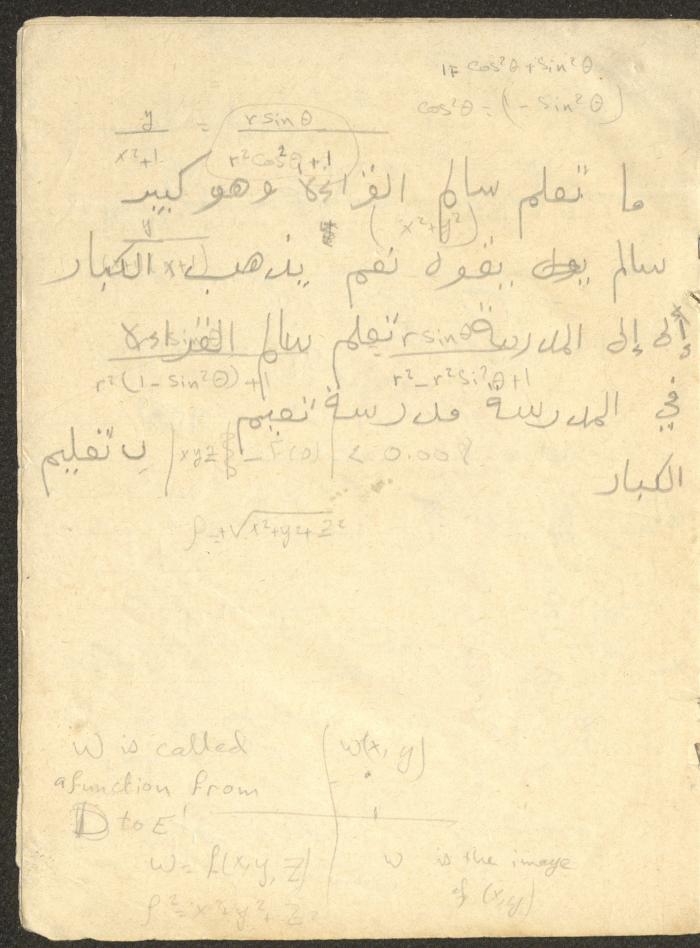 IF cos²θ + sin²θ
cos²θ = (1 - sin²θ)
y/(x²+1) = r sinθ/(r²cos²θ+1)
ما تعلم سالم القراءة وهو كبير
(x²+y²)
سالم يقول نعم يذهب الكبار
إلى إلى المدرسة تعلم سالم القراءة
r sinθ/(r² - r²sin²θ+1)
r²(1 - sin²θ)+1
في المدرسة مدرسة تعيم
تعليم
الكبار
< 0.008
ρ = +√x²+y²+z²
w is called
a function from
D to E
w = f(x, y, z)
ρ² = x²+y²+z²
w(x, y)
w is the image
of (x, y)